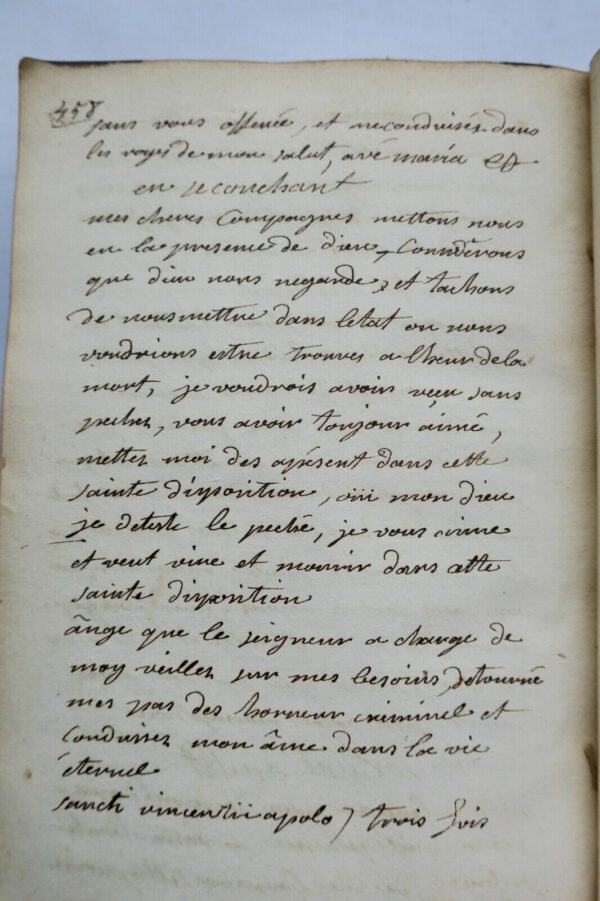 458
sans vous offencé, et me conduisés dans
les voyes de mon salut, avé maria
en se couchant
mes cheres Compagnes mettons nous
en la presence de dieu, Considerons
que dieu nous regarde, et tachons
de nous mettre dans letat ou nous
voudrions estre trouves a lheur de la
mort, je voudrois avoir vecu sans
pechez, vous avoir toujour aimé,
mettez moi des apésent dans cette
sainte disposition, oui mon dieu
je deteste le peché, je vous aime
et veut vivre et mourir dans cette
sainte disposition
ânge que le seigneur a charge de
moy veillez sur mes besoins, detourné
mes pas des horreur criminel et
conduisez mon âme dans la vie
éternel
sancti vincentii apolo) trois fois